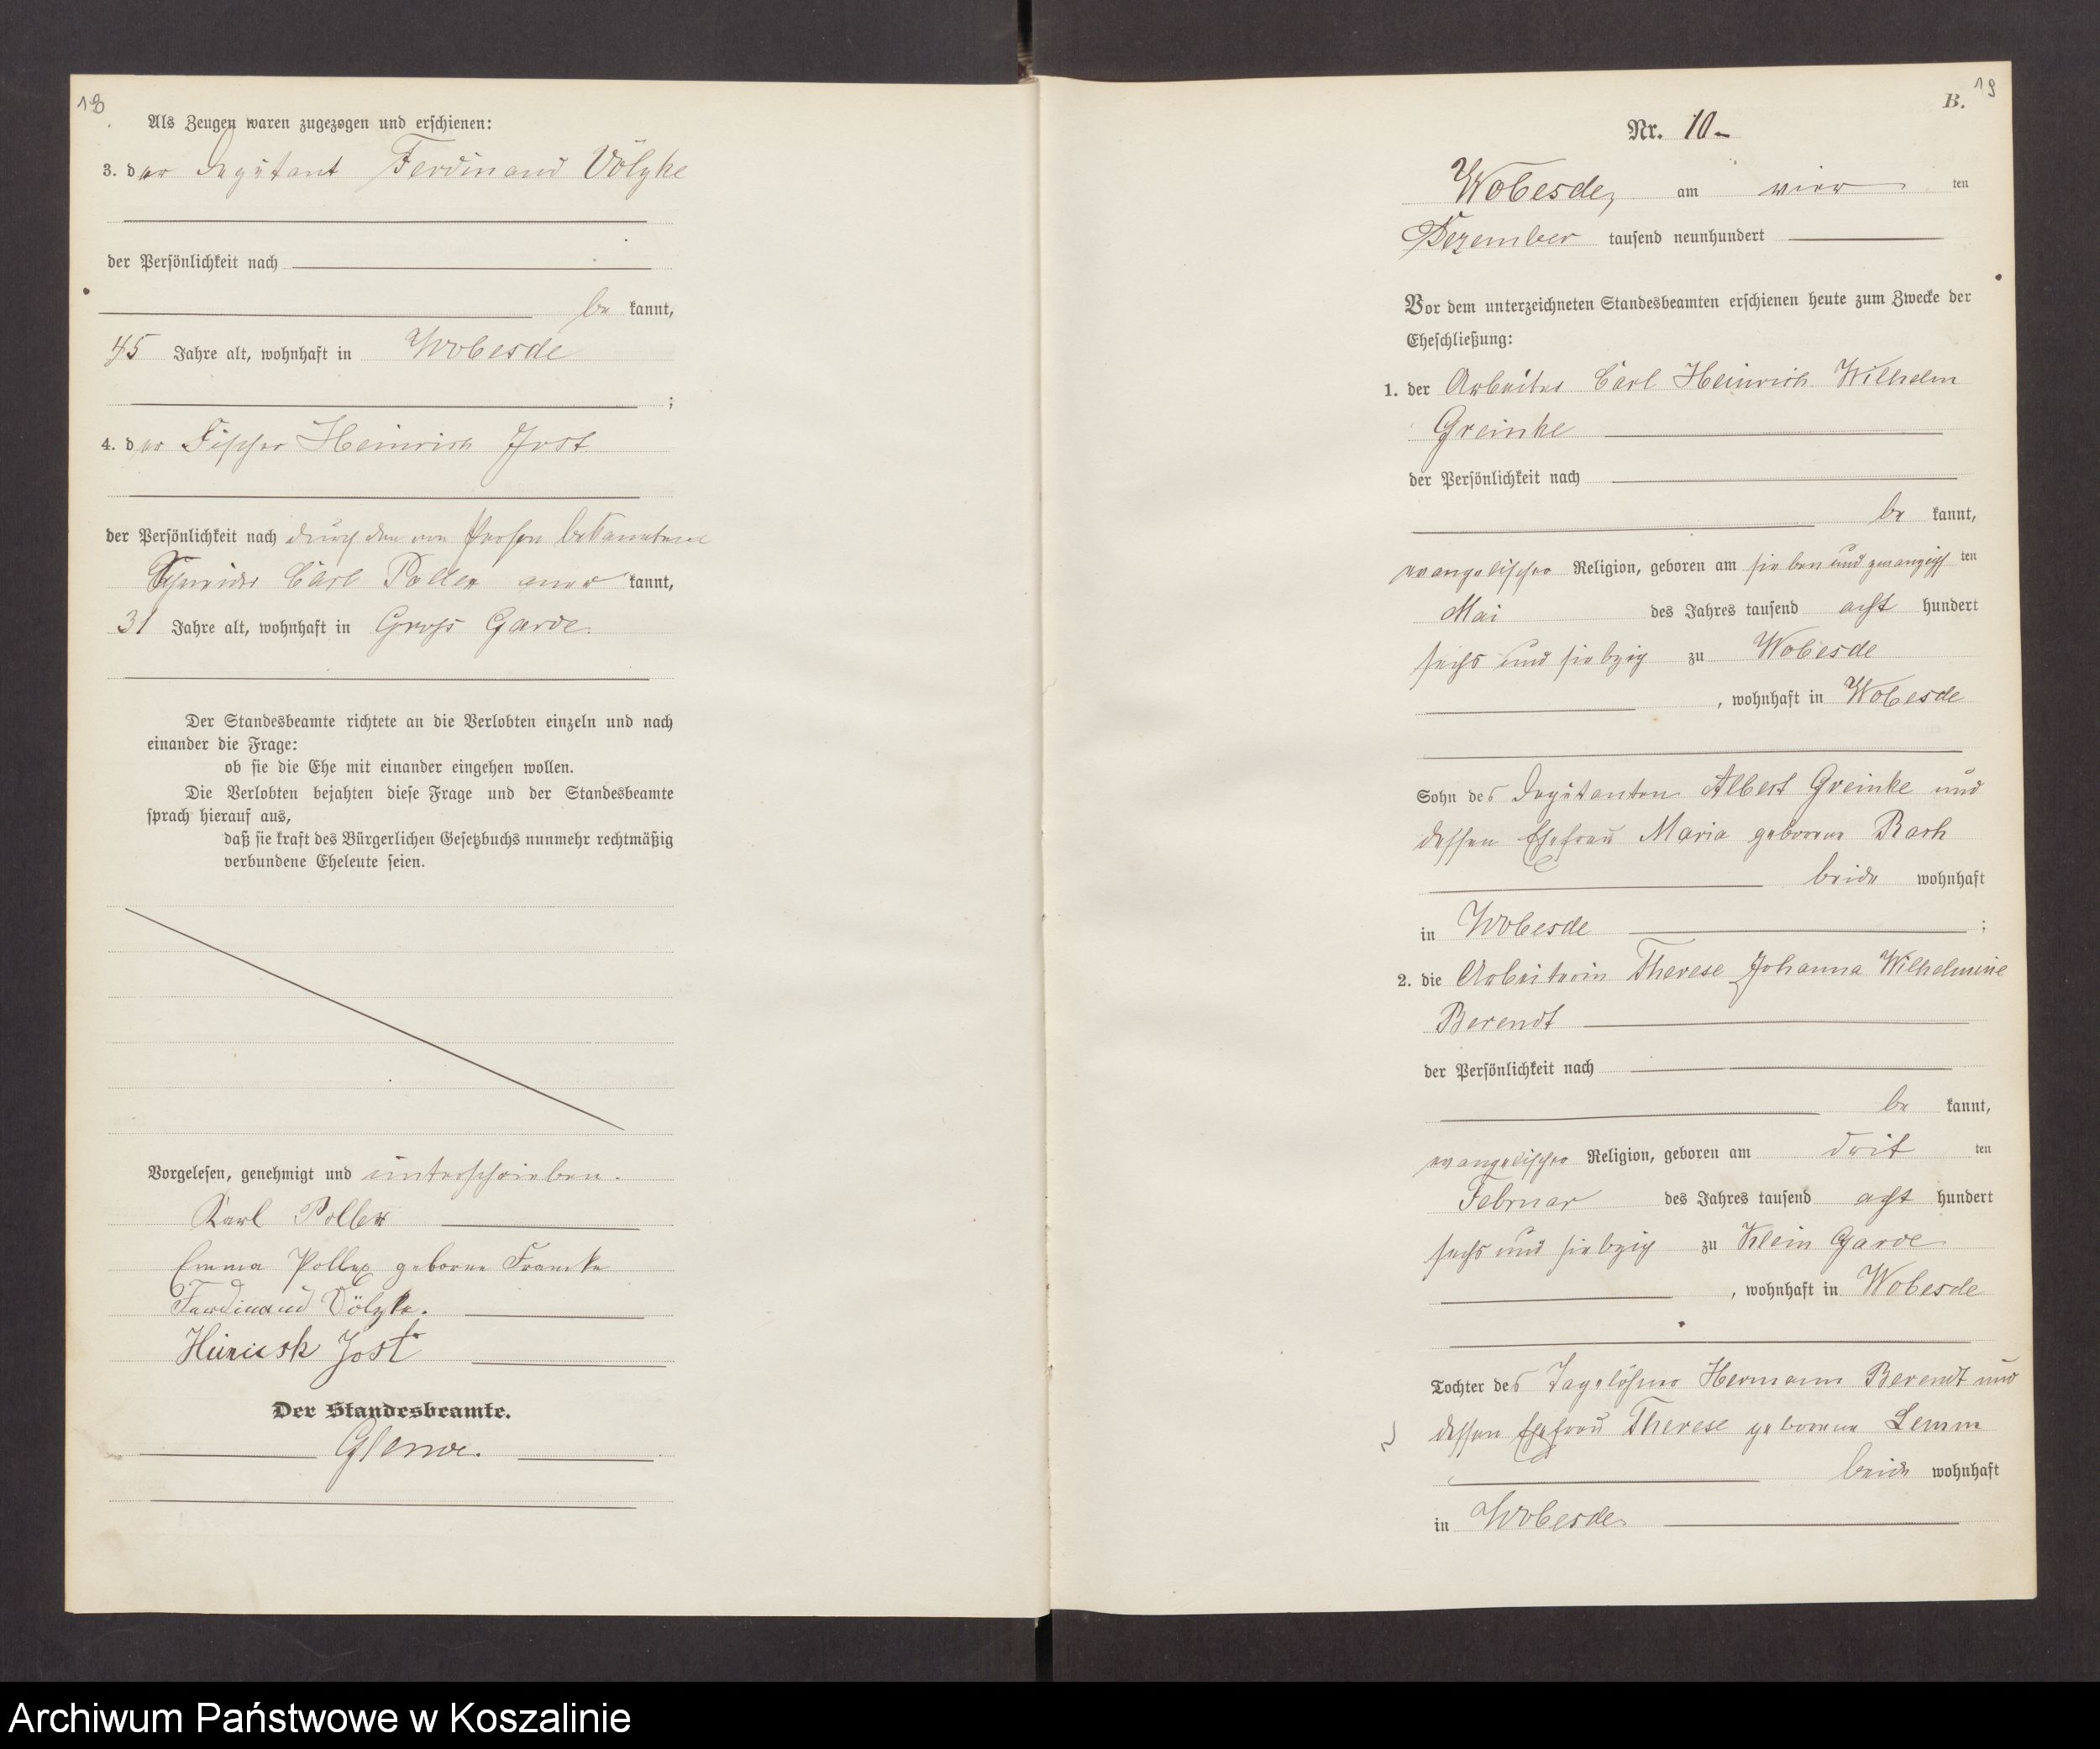 18
Als Zeugen waren zugezogen und erschienen:
3. der Deputant Ferdinand Völzke
der Persönlichkeit nach
be kannt,
45 Jahre alt, wohnhaft in Wobesde
;
4. der Fischer Heinrich Jost
der Persönlichkeit nach durch den von Person bekannten
Schneider Carl Pollex aner kannt,
31 Jahre alt, wohnhaft in Gross Garde
Der Standesbeamte richtete an die Verlobten einzeln und nach
einander die Frage:
ob sie die Ehe mit einander eingehen wollen.
Die Verlobten bejahten diese Frage und der Standesbeamte
sprach hierauf aus,
daß sie kraft des Bürgerlichen Gesetzbuchs nunmehr rechtmäßig
verbundene Eheleute seien.
Vorgelesen, genehmigt und unterschrieben.
Karl Pollex
Emma Pollex geborne Framke
Ferdinand Völzke.
Heinrich Jost
Der Standesbeamte.
19
B.
Nr. 10
Wobesde, am vier ten
Dezember tausend neunhundert
Vor dem unterzeichneten Standesbeamten erschienen heute zum Zwecke der
Eheschließung:
1. der Arbeiter Carl Heinrich Wilhelm
Greinke
der Persönlichkeit nach
be kannt,
evangelischer Religion, geboren am sieben und zwanzigs ten
Mai des Jahres tausend acht hundert
sechs und siebzig zu Wobesde
, wohnhaft in Wobesde
Sohn des Deputanten Albert Greinke und
dessen Ehefrau Maria geborene Rach
beide wohnhaft
in Wobesde ;
2. die Arbeiterin Therese Johanna Wilhelmine
Berendt
der Persönlichkeit nach
be kannt,
evangelischer Religion, geboren am drit ten
Februar des Jahres tausend acht hundert
sechs und siebzig zu Klein Garde
, wohnhaft in Wobesde
Tochter des Tagelöhner Hermann Berendt und
dessen Ehefrau Therese geborene Lemm
beide wohnhaft
in Wobesde
Archiwum Państwowe w Koszalinie